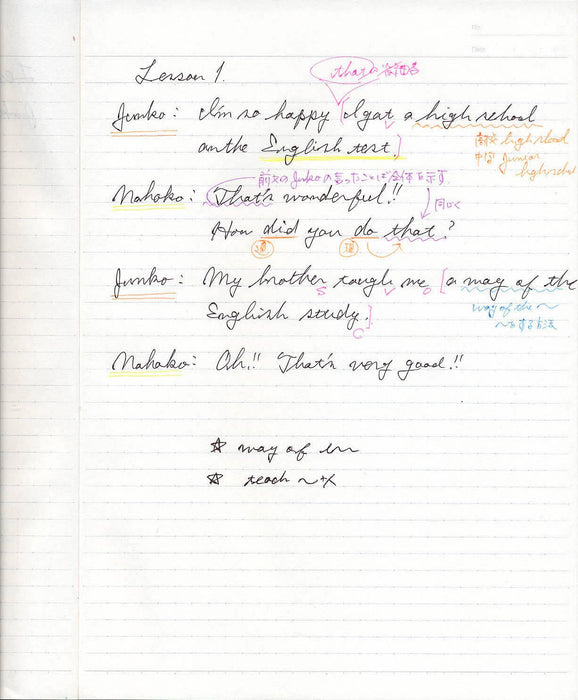 No.
Date
Lesson 1.
thatの省略
Junko: I'm so happy [I got a high school
on the English test.]
高校 high school
中学 junior
highschool
前文のJunkoの言ったことば全体を示す
Nahoko: That's wonderful!!
同じく
How did you do that?
Junko: My brother taugh me [a way of the
S V O
English study.]
O
way of the 〜
〜する方法
Nahoko: Oh!! That's very good!!
☆ way of
☆ teach 〜+